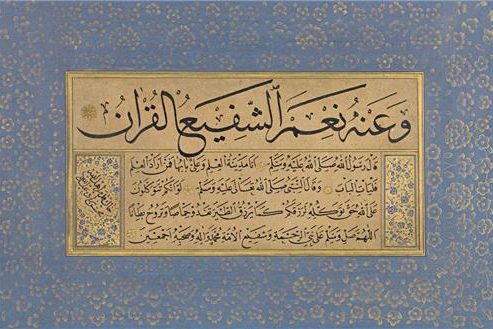 وَعَنْهُ نِعْمَ الشَّفِيعُ الْقُرْآنُ
قال رسول الله صلى الله عليه وسلم انا مدينة العلم وعلى بابها فمن اراد العلم
فليات الباب وقال النبى صلى الله تعالى عليه وسلم لو انكم تتوكلون
على الله حق توكله لرزقكم كما يرزق الطير تغدو خماصا وتروح بطانا
اللهم صل وسلم على نبى الرحمة وشفيع الامة محمد واله وصحبه اجمعين